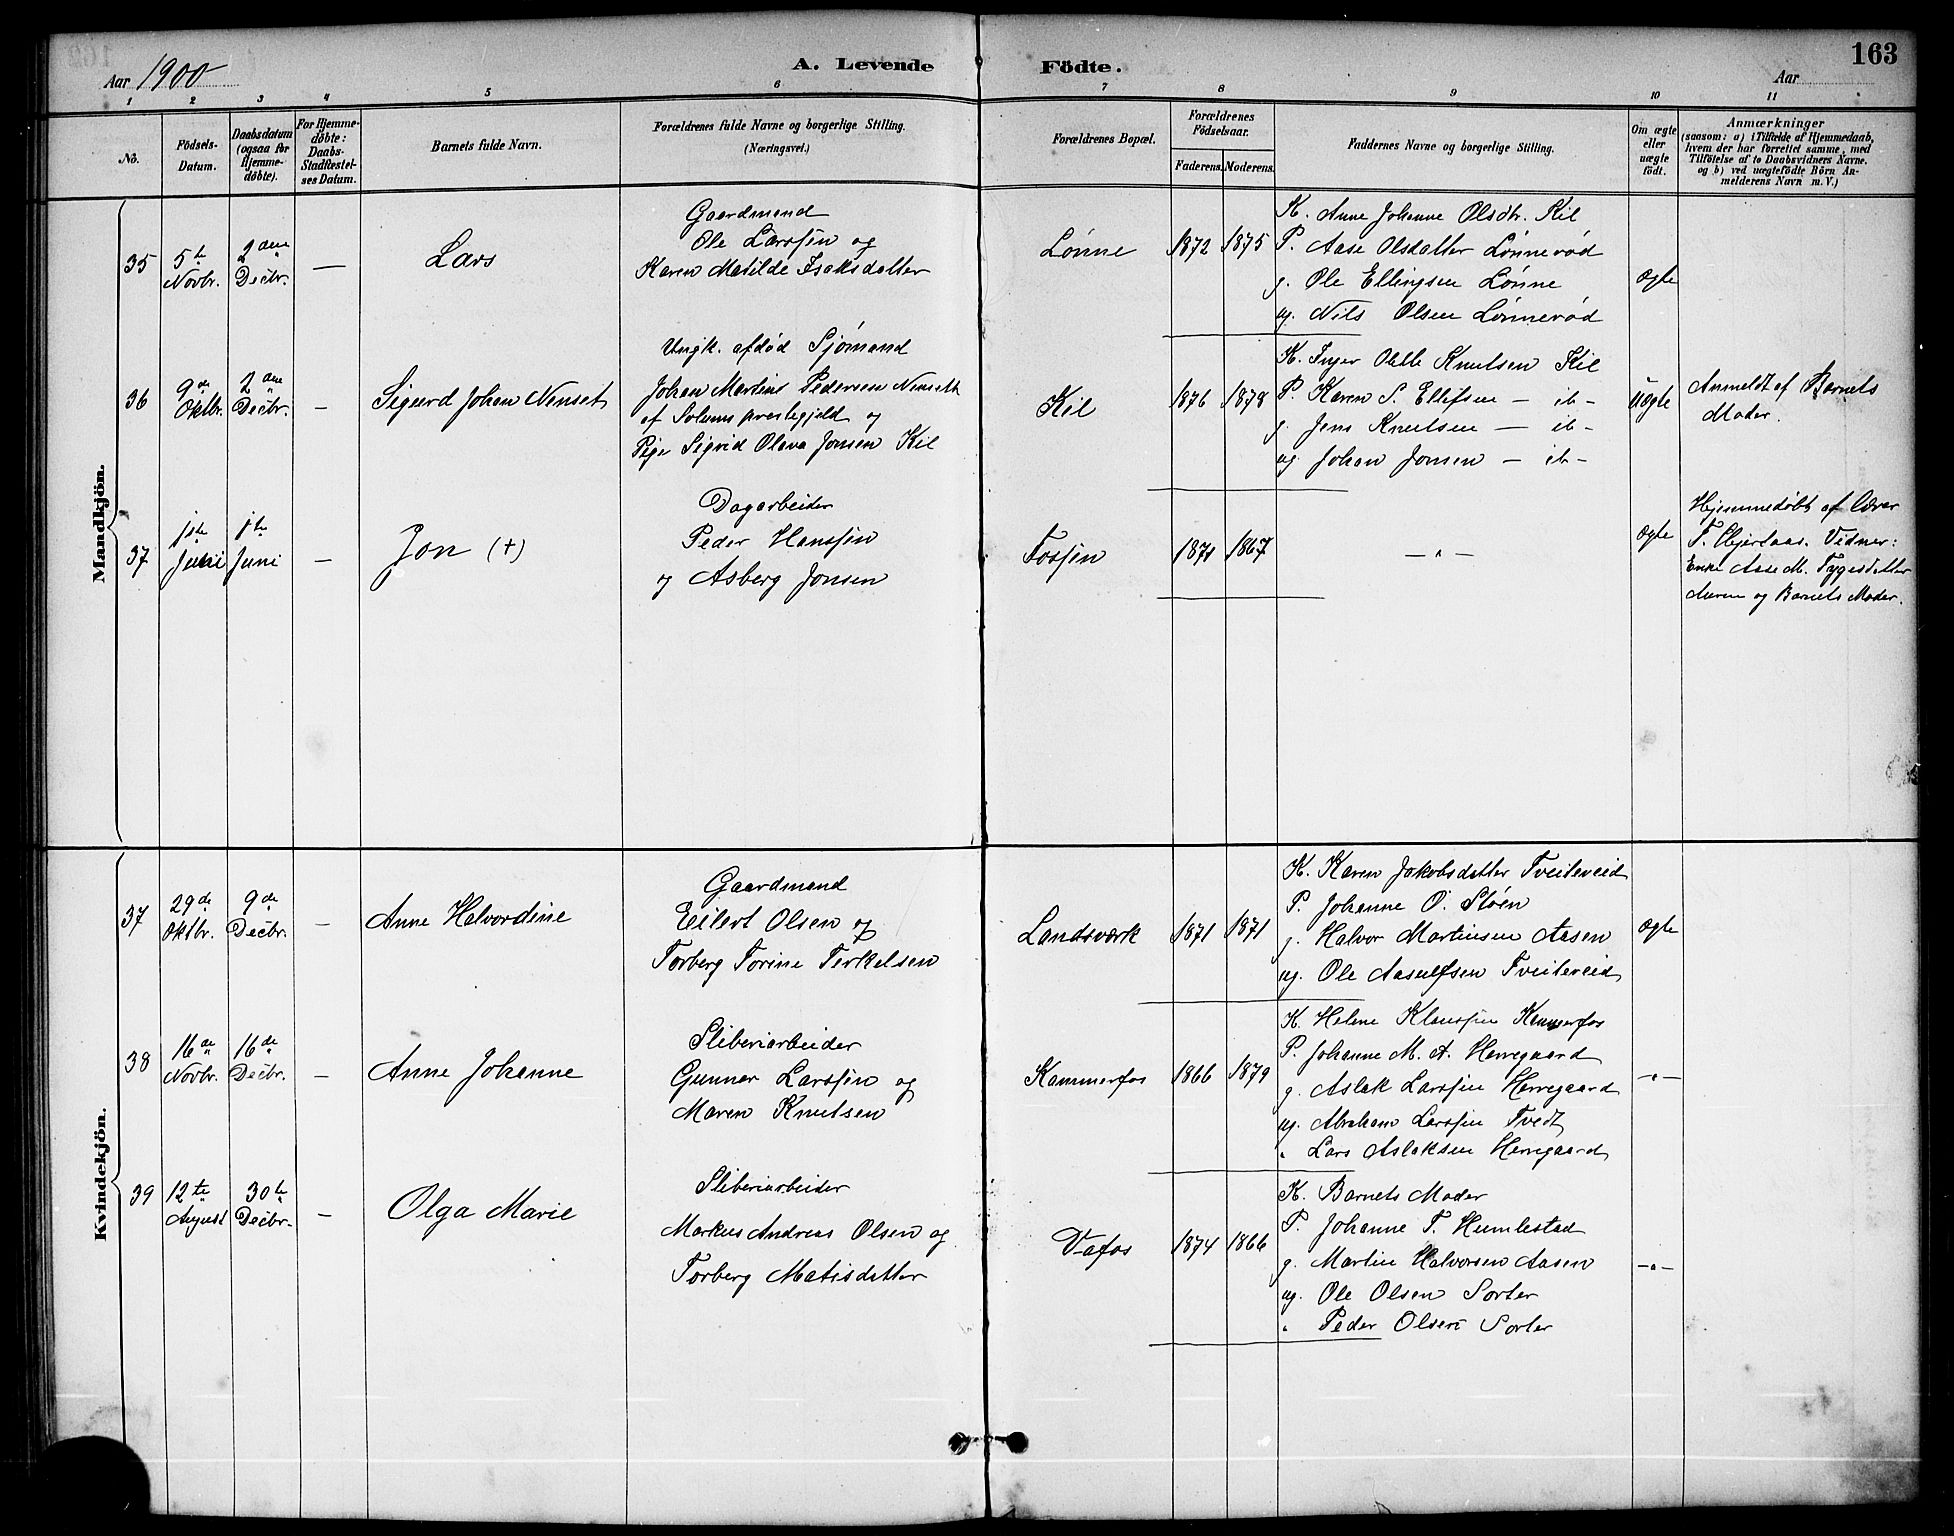 Aar 1900
A. Levende Födte.
163
Aar
1 2 3 4 5 6 7 8 9 10 11
No.
Födsels-Datum.
Daabsdatum (ogsaa for Hjemme-döbte).
For Hjemme-döbte: Daabs-Stadfæstel-ses Datum.
Barnets fulde Navn.
Forældrenes fulde Navne og borgerlige Stilling.
(Næringsvei.)
Forældrenes Bopæl.
Forældrenes Födselsaar.
Faderens. Moderens.
Faddernes Navne og borgerlige Stilling.
Om ægte eller uægte födt.
Anmærkninger
(saasom: a) i Tilfælde af Hjemmedaab,
hvem der har forrettet samme, med
Tilföielse af to Daabsvidners Navne.
og b) ved uægtefödte Börn An-
melderens Navn m. V.)
Mandkjön.
35
5te Novbr.
2den Decbr.
—
Lars
Gaardmand
Ole Larssen og
Karen Matilde Isaksdatter
Lønne
1872 1875
K. Anne Johanne Olsdtr. Kil
P. Aase Olsdatter Lønnerød
g. Ole Ellingsen Lønne
ug. Nils Olsen Lønnerød
ægte
36
9de Oktbr.
2den Decbr.
—
Sigurd Johan Nenset
Ungk. afdød Sjømand
Johan Martins Pedersen Nensett
af Solums prestegjeld og
Pige Sigrid Olava Jonsen Kil
Kil
1876 1878
K. Inger Oelle Knutsen Kil
P. Karen S. Ellefsen — ib —
g. Jens Knutsen — ib —
ug. Johan Jonsen — ib —
uægte
Anmeldt af Barnets
Moder.
37
1ste Juni
1ste Juni
—
Jon (+)
Dagarbeider
Peder Hanssen
og Asberg Jonsen
Fossen
1871 1867
— " —
ægte
Hjemmedøbt af
T. Vidner:
Enke Aase M. Tygesdatter
og Barnets Moder.
Kvindekjön.
37
29de Oktbr.
9de Decbr.
—
Anne Halvordine
Gaardmand
Eilert Olsen og
Torberg Torine Terkelsen
Landsværk
1871 1871
K. Karen Jakobsdatter Tveitereid
P. Johanne O. Støen
g. Halvor Martinsen Aasen
ug. Ole Aasulfsen Tveitereid
ægte
38
16de Novbr.
16de Decbr.
—
Anne Johanne
Sliberiarbeider
Gunnar Larssen og
Maren Knutsen
Kammerfos
1866 1879
K. Helene Klaussen Kammerfos
P. Johanne M. A. Herregaard
g. Aslak Larssen Herregaard
ug. Abraham Larssen Tvedt
" Lars Aslaksen Herregaard
— " —
39
12te August
30te Decbr.
—
Olga Marie
Sliberiarbeider
Markus Andreas Olsen og
Torberg Matisdatter
Vafos
1874 1866
K. Barnets Moder
P. Johanne T. Humlestad
g. Martin Halvorsen Aasen
ug. Ole Olsen Sorter
" Peder Olsen Sorter
— " —